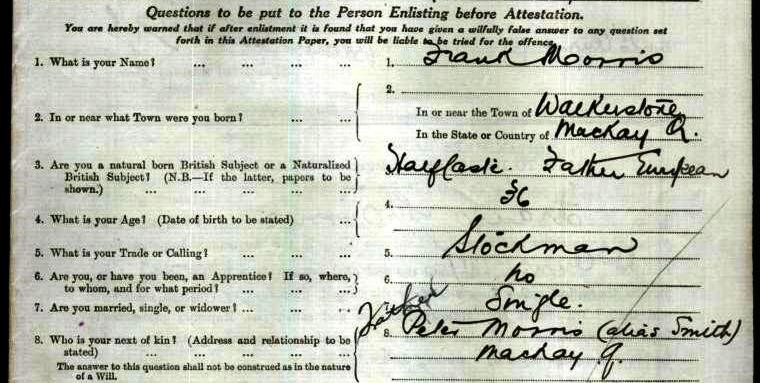 Questions to be put to the Person Enlisting before Attestation.
You are hereby warned that if after enlistment it is found that you have given a wilfully false answer to any question set
forth in this Attestation Paper, you will be liable to be tried for the offence.
1. What is your Name? ... ... ... ... 1. Frank Morris
2. In or near what Town were you born? ... ... 2. In or near the Town of Walkerstone
In the State or Country of Mackay Q.
3. Are you a natural born British Subject or a Naturalized Halfcaste. Father European
British Subject? (N.B.—If the latter, papers to be
shown.) ... ... ... ... ...
4. What is your Age? (Date of birth to be stated) ... 4. 36
5. What is your Trade or Calling? ... ... ... 5. Stockman
6. Are you, or have you been, an Apprentice? If so, where, 6. no
to whom, and for what period? ... ... ...
7. Are you married, single, or widower? ... ... ... 7. Single.
Father
8. Who is your next of kin? (Address and relationship to be 8. Peter Morris (alias Smith)
stated) ... ... ... ... ... Mackay Q.
The answer to this question shall not be construed as in the nature
of a Will.